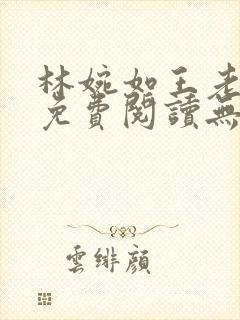 林婉如王老
免費閱讀無
雲緋顏